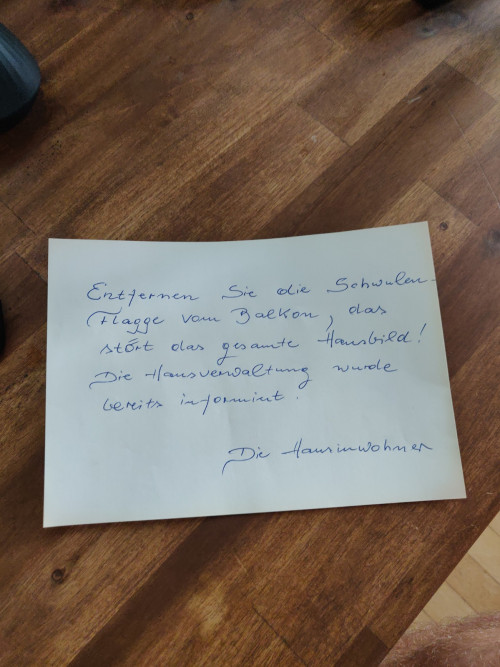 Entfernen Sie die Schwulen-
Flagge vom Balkon, das
stört das gesamte Hausbild!
Die Hausverwaltung wurde
bereits informiert.
Die Hauseinwohner